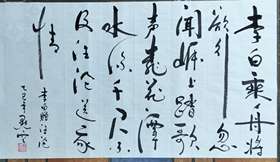 李白乘舟将
欲行忽
闻岸上踏歌
声桃花潭
水深千尺不
及汪伦送我
情
李白赠汪伦
乙巳年